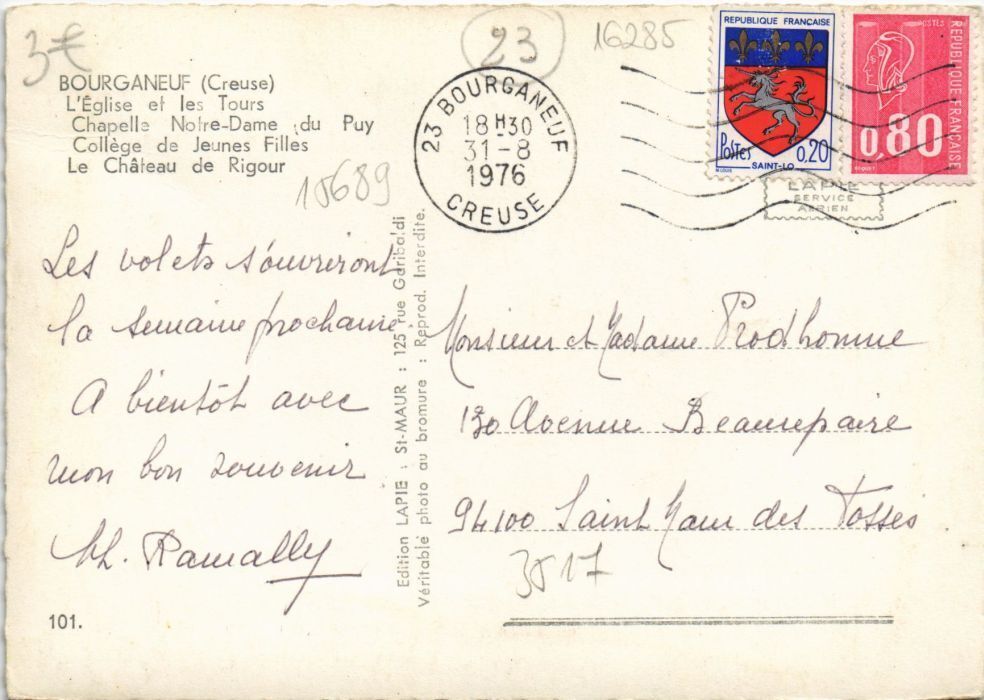 3€
23
16285
BOURGANEUF (Creuse)
L'Église et les Tours
Chapelle Notre-Dame du Puy
Collège de Jeunes Filles
Le Château de Rigour
15689
23 BOURGANEUF
18H30
31-8
1976
CREUSE
REPUBLIQUE FRANÇAISE
Postes 0,20
SAINT-LO
POSTES
REPUBLIQUE FRANÇAISE
0,80
LAPIE
SERVICE
AERIEN
Les volets s'ouvriront
la semaine prochaine
A bientôt avec
mon bon souvenir
Edition LAPIE : St-MAUR : 125 rue Garibaldi
Véritable photo au bromure : Reprod. Interdite.
Monsieur et Madame Prodhomme
130 Avenue Beaurepaire
94100 Saint Maur des Fossés
3517
101.